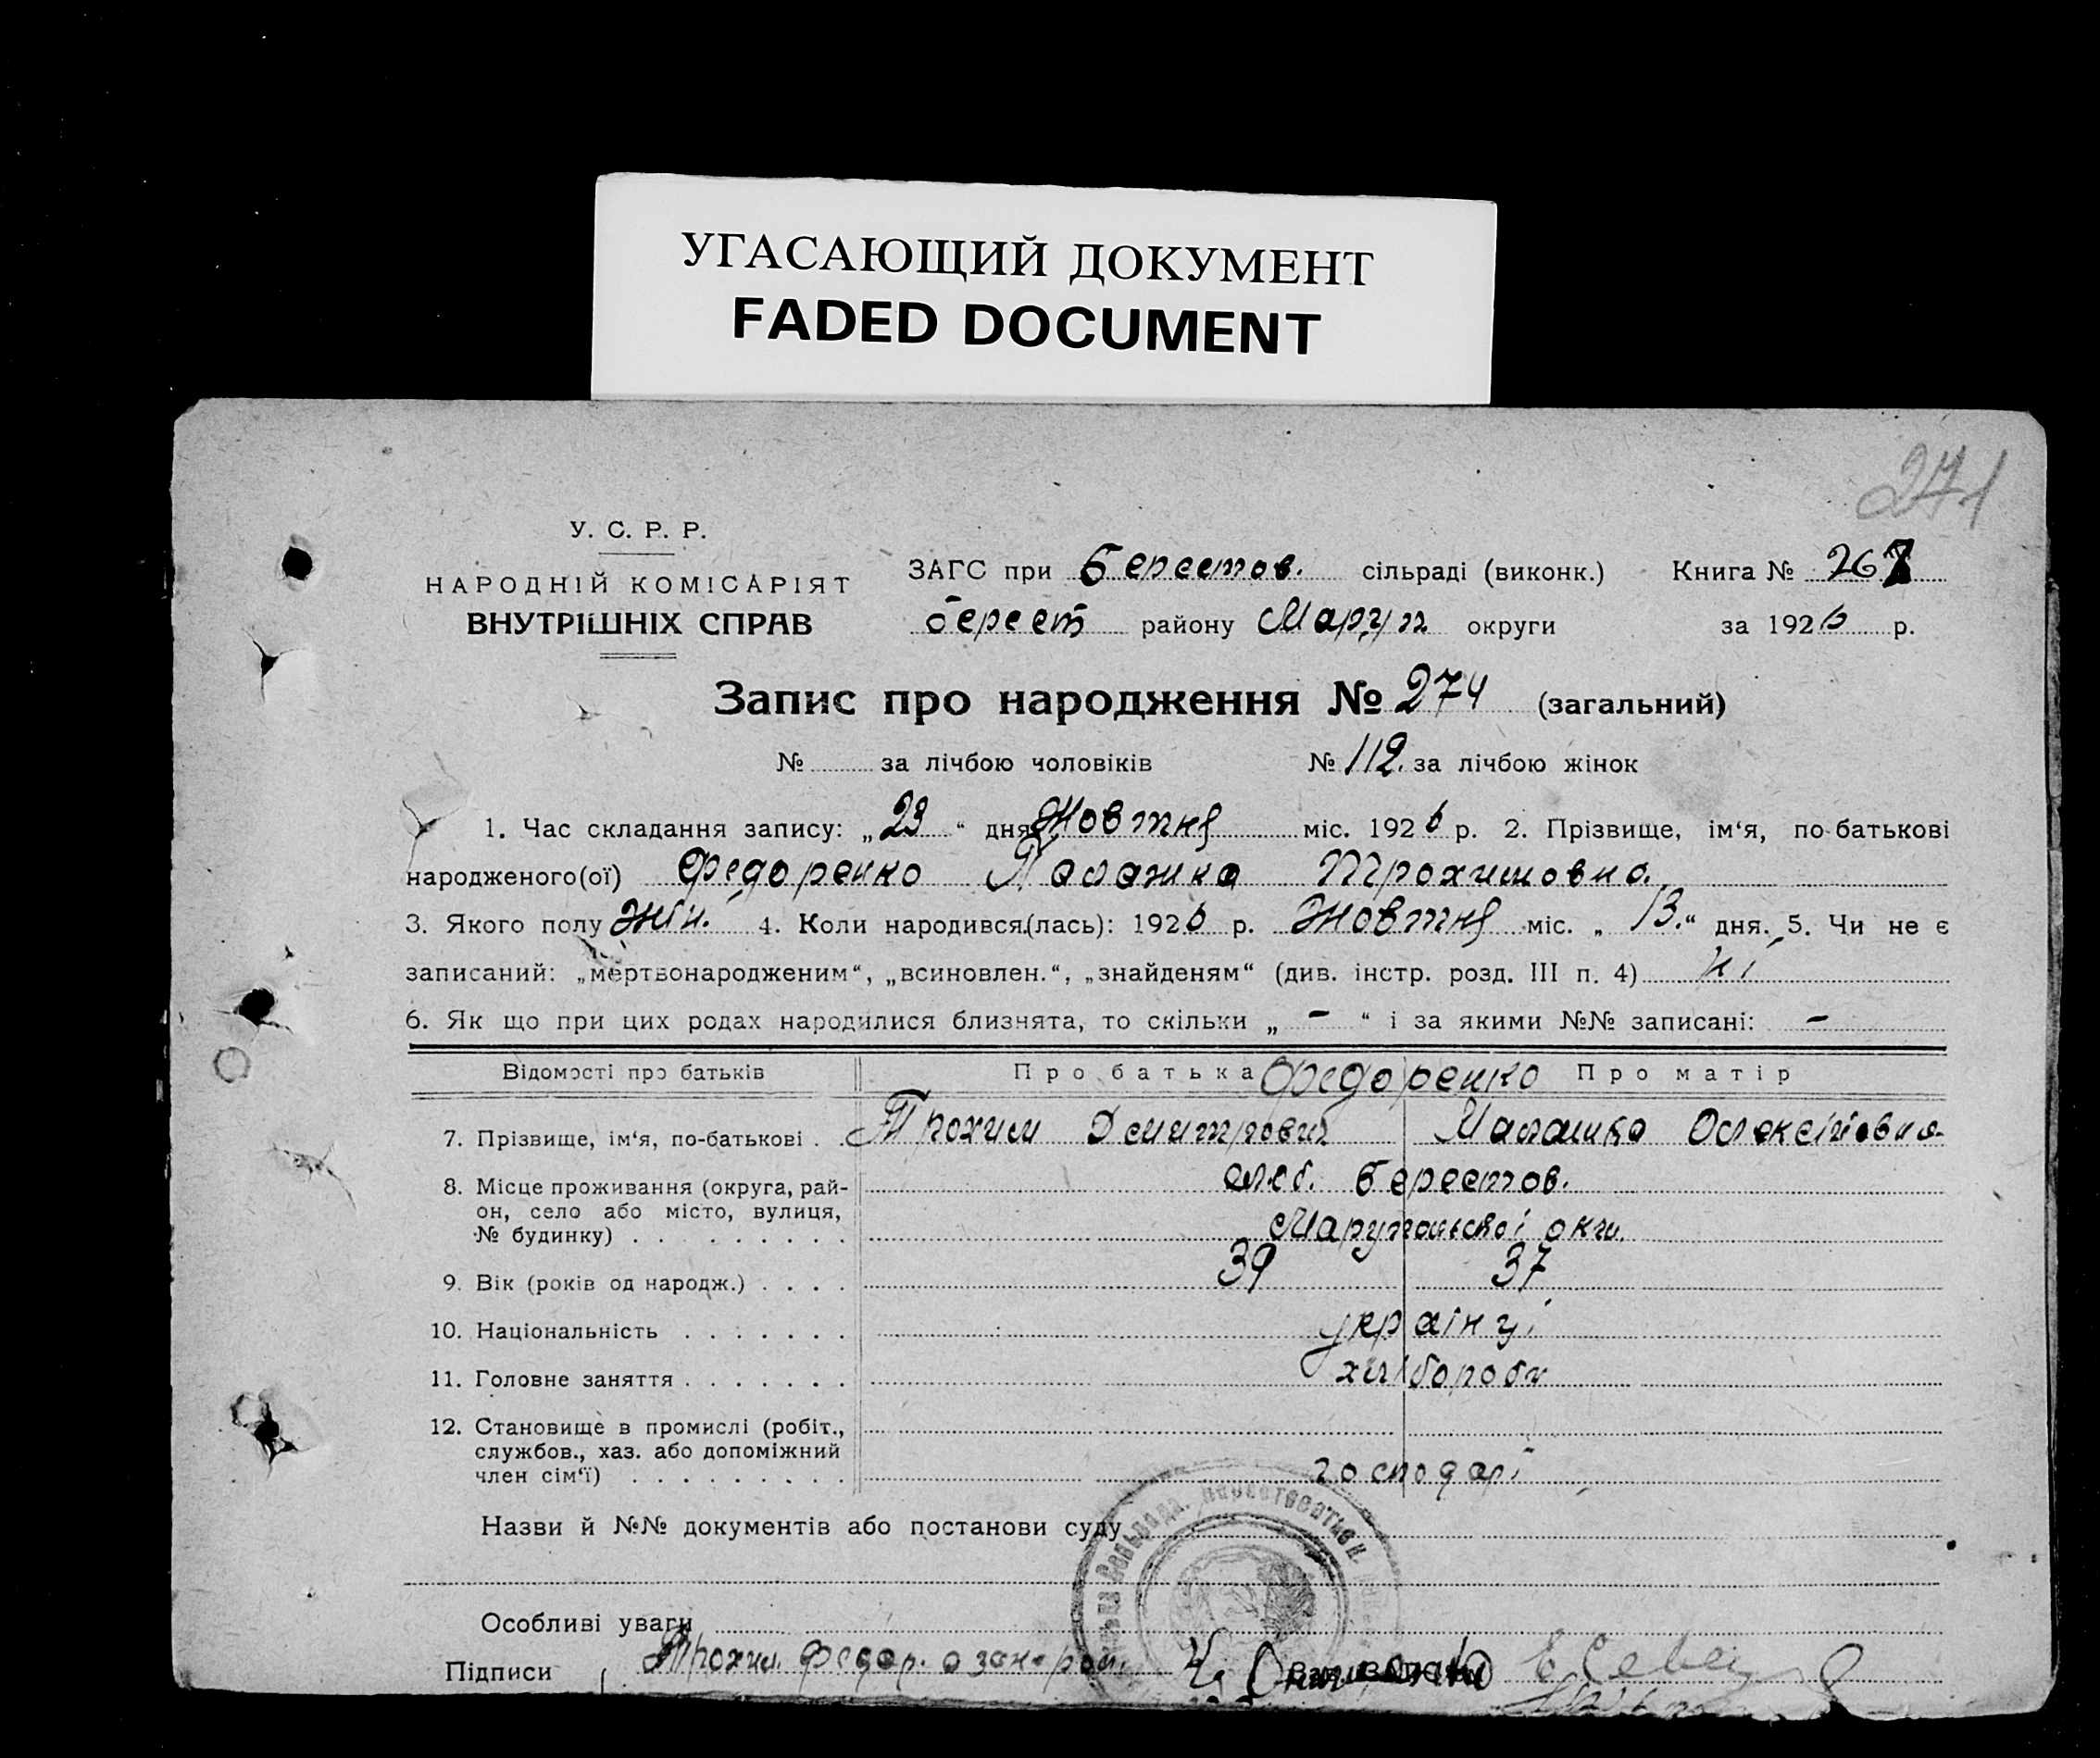 УГАСАЮЩИЙ ДОКУМЕНТ
FADED DOCUMENT
271
У. С. Р. Р.
НАРОДНІЙ КОМІСАРІЯТ
ВНУТРІШНІХ СПРАВ
ЗАГС при Берестов. сільраді (виконк.) Книга № 267
берест району Маріуп округи за 1926 р.
Запис про народження № 274 (загальний)
№ за лічбою чоловіків № 112. за лічбою жінок
1. Час складання запису: „23“ дня Жовтня міс. 1926 р. 2. Прізвище, ім‘я, по-батькові
народженого(ої) Федоренко Палажка Трохимовна.
3. Якого полу жін. 4. Коли народився(лась): 1926 р. Жовтня міс. „13.“ дня. 5. Чи не є
записаний: „мертвонародженим“, „всиновлен.“, „знайденям“ (див. інстр. розд. III п. 4) ні
6. Як що при цих родах народилися близнята, то скільки „ - “ і за якими №№ записані: -
Відомості про батьків Про батька Федоренко Про матір
7. Прізвище, ім‘я, по-батькові . . Трохим Демитрович Малашка Олексіївна
8. Місце проживання (округа, рай-
он, село або місто, вулиця,
№ будинку) . . . . . . . . .
Берестов.
Маріупольскої окр.
9. Вік (років од народж.) . . . . 39 37
10. Національність . . . . . . . українці
11. Головне заняття . . . . . . . хліБороби
12. Становище в промислі (робіт.,
службов., хаз. або допоміжний
член сім‘ї) . . . . . . . . . господарі
Назви й №№ документів або постанови суду
Особливі уваги
Підписи Трохим Федор. а